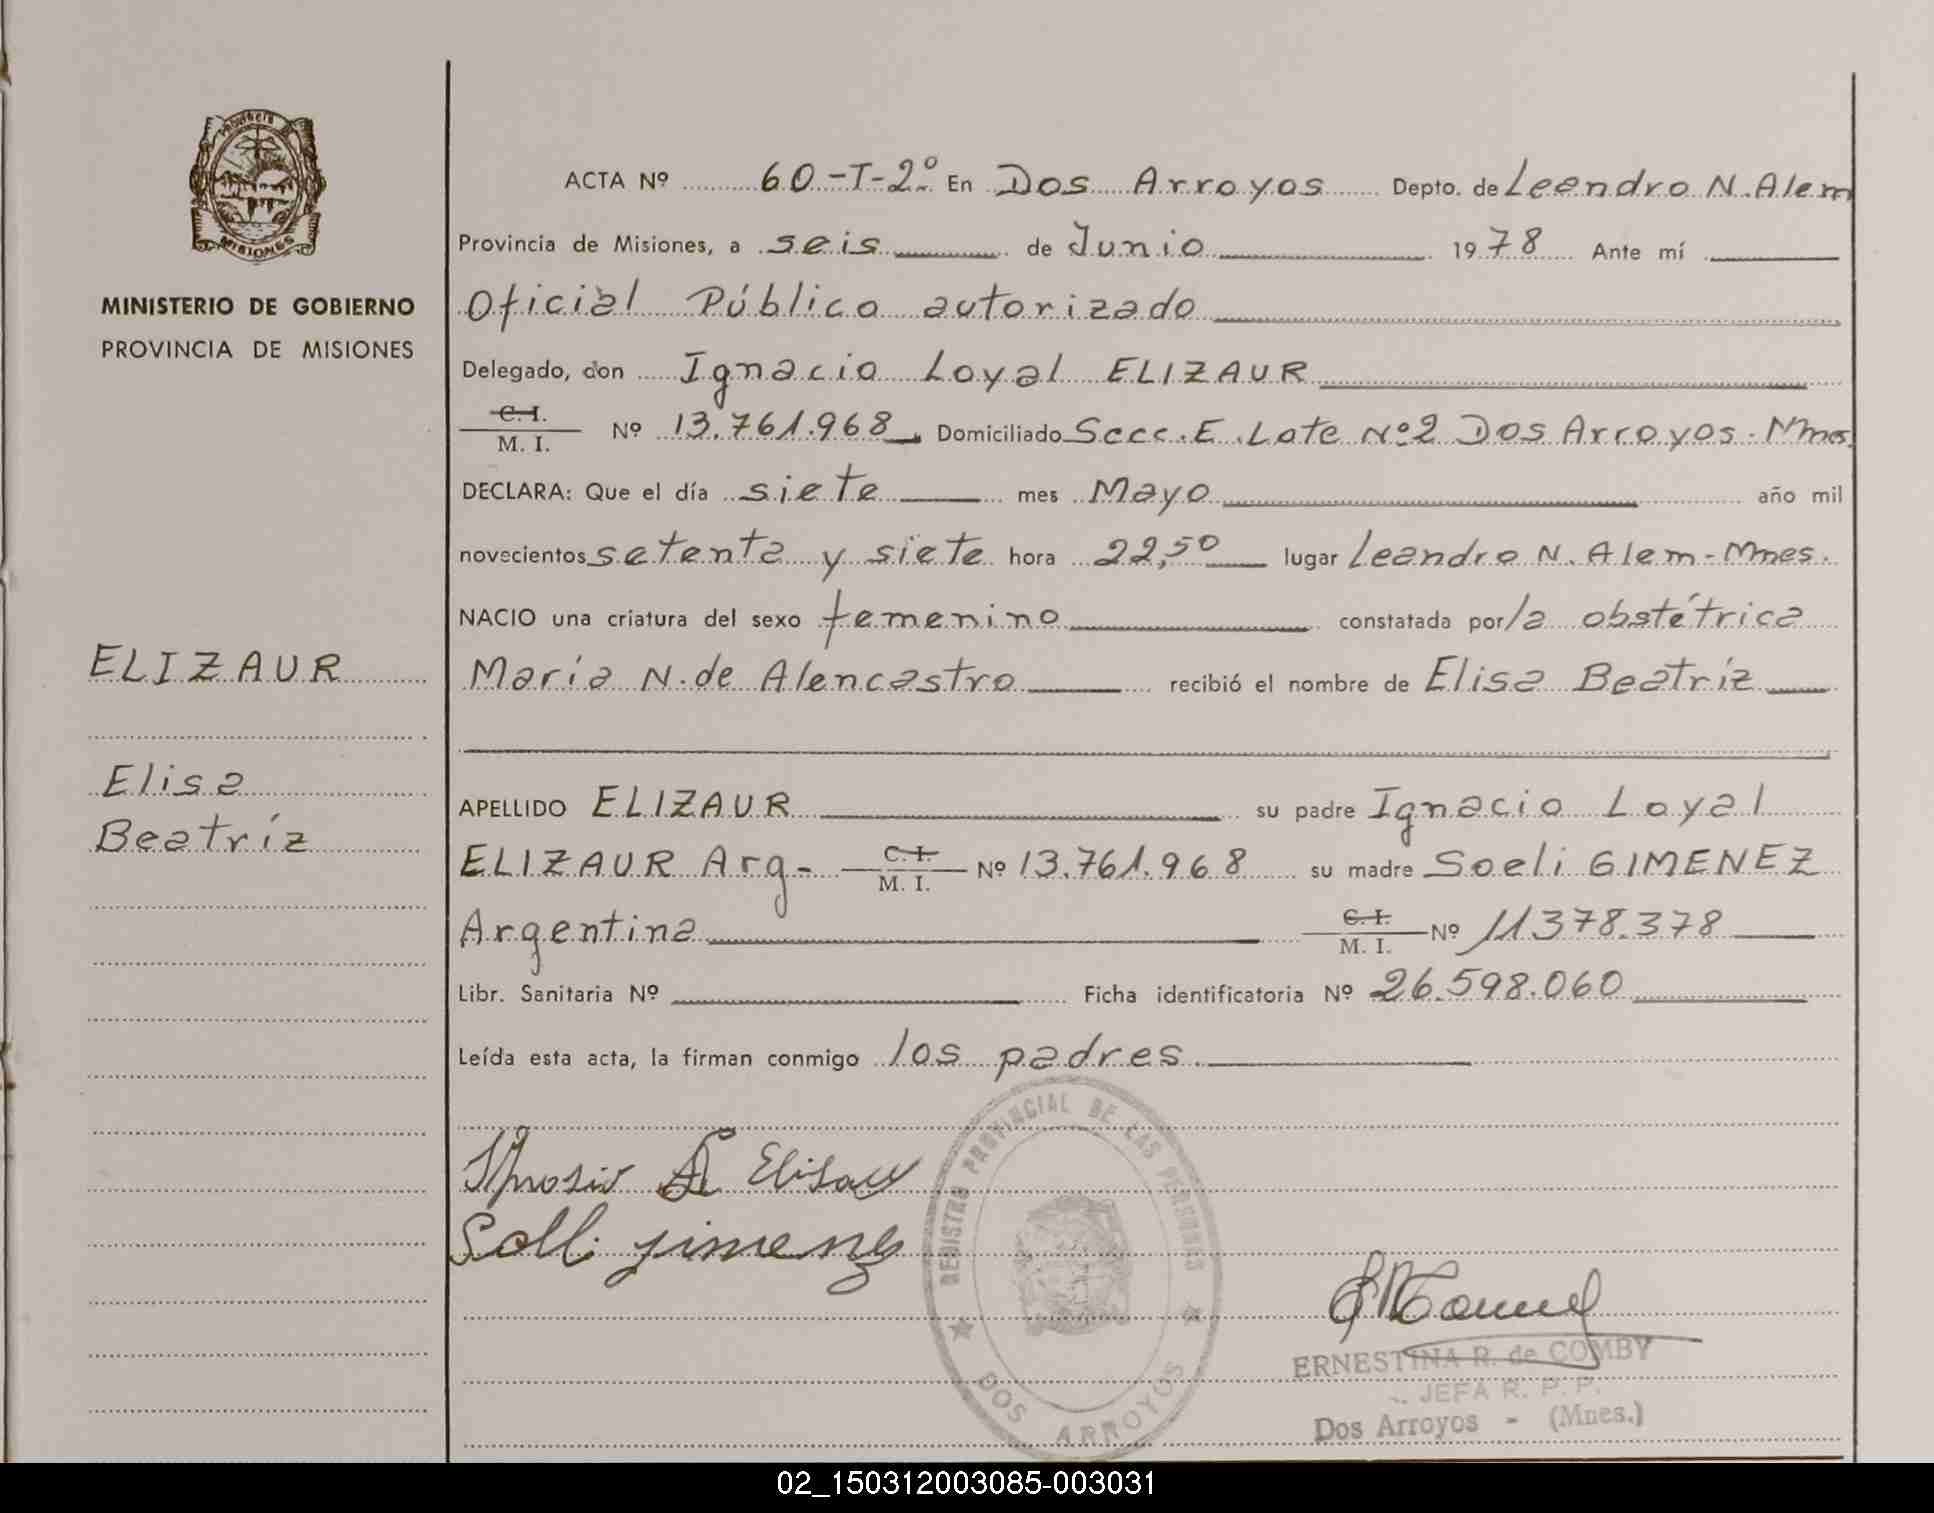 PROVINCIA DE
MISIONES
MINISTERIO DE GOBIERNO
PROVINCIA DE MISIONES
ELIZAUR
Elisa
Beatríz
ACTA Nº 60-T-2º En Dos Arroyos Depto. de Leandro N. Alem
Provincia de Misiones, a seis de Junio 1978 Ante mí
Oficial Público autorizado
Delegado, don Ignacio Loyal ELIZAUR
C. I.
M. I. Nº 13.761.968 Domiciliado Secc. E. Lote Nº2 Dos Arroyos. Mnes.
DECLARA: Que el día siete mes Mayo año mil
novecientos setenta y siete hora 22,50 lugar Leandro N. Alem - Mnes.
NACIO una criatura del sexo femenino constatada por la obstétrica
María N. de Alencastro recibió el nombre de Elisa Beatríz
APELLIDO ELIZAUR su padre Ignacio Loyal
ELIZAUR Arg- C. I. M. I. Nº 13.761.968 su madre Soeli GIMENEZ
Argentina C. I. M. I. Nº 11378.378
Libr. Sanitaria Nº Ficha identificatoria Nº 26.598.060
Leída esta acta, la firman conmigo los padres
REGISTRO PROVINCIAL DE LAS PERSONAS
DOS ARROYOS
ERNESTINA R. de COMBY
JEFA R. P. P.
Dos Arroyos - (Mnes.)
02_150312003085-003031